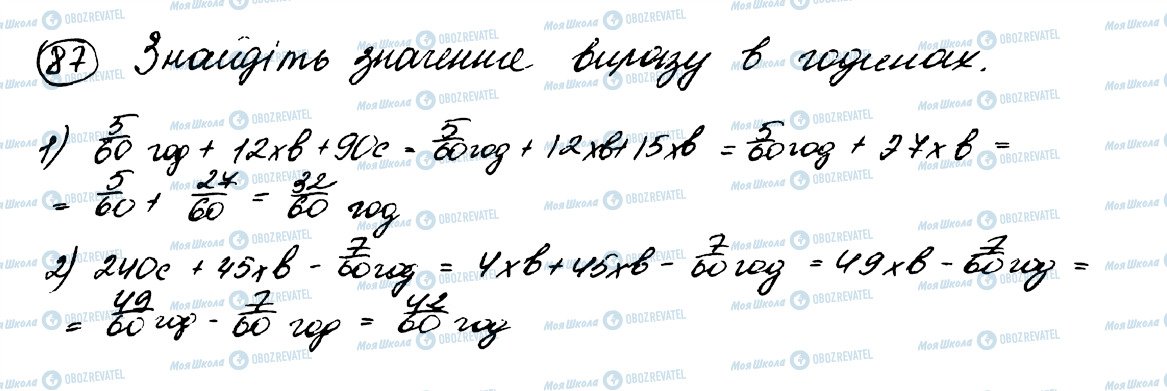 87 Знайдіть значение виразу в годинах.
1) 5/60 год + 12хв + 90с = 5/60 год + 12хв + 15хв = 5/60 год + 27хв =
= 5/60 + 27/60 = 32/60 год
2) 240с + 45хв - 7/60 год = 4хв + 45хв - 7/60 год = 49хв - 7/60 год =
= 49/60 год - 7/60 год = 42/60 год
МояШкола OBOZREVATEL